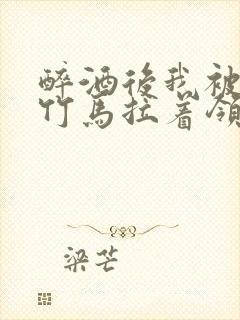 醉酒後我被
竹馬拉着領
梁芒